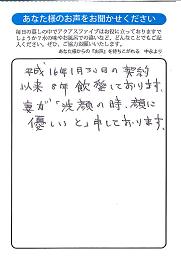 あなた様のお声をお聞かせください
毎日の暮しの中でアクアスファイブはお役に立っておりますで
しょうか?水の味やお風呂での違いなど、どんなことでもご記
入ください。ぜひ、ご協力お願いいたします。
あなた様からの『お声』を待ちこがれる 中永より
平成16年1月30日の契約
以来8年飲整しております。
妻が「洗顔の時、顔に
優しい」と申しております。